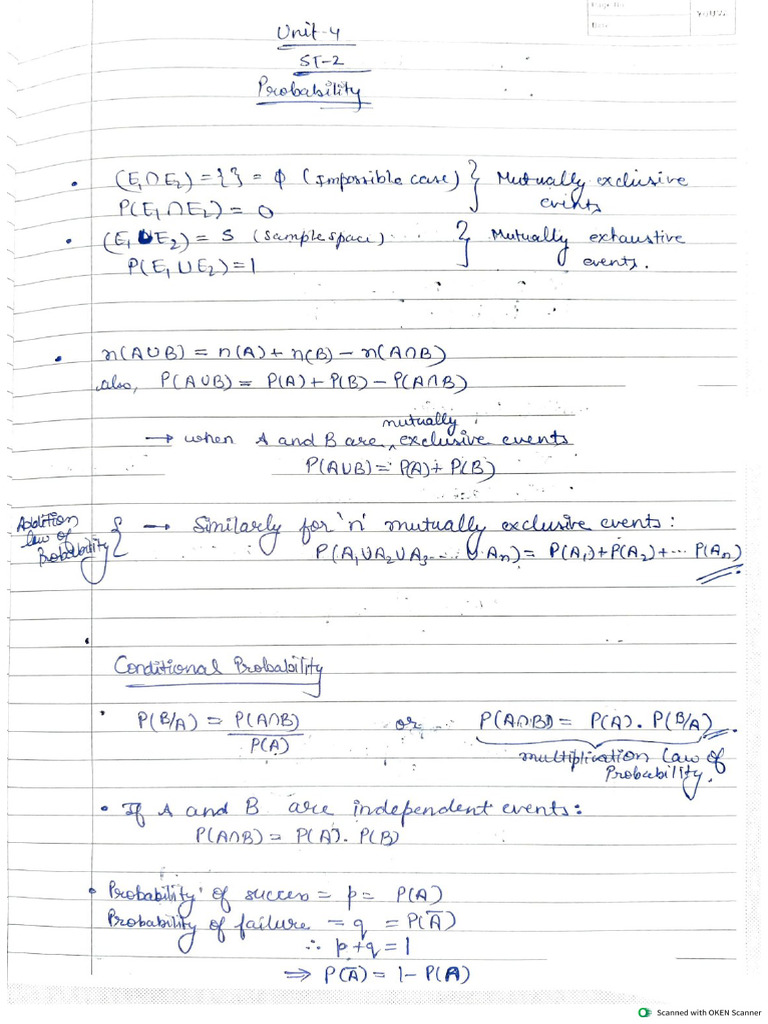 Unit-4
ST-2
Probability
• (E₁∩E₂) = { } = ϕ (Impossible case) } Mutually exclusive events
P(E₁∩E₂) = 0
• (E₁∪E₂) = S (Sample space) } Mutually exhaustive events.
P(E₁∪E₂) = 1
• n(A∪B) = n(A) + n(B) − n(A∩B)
also, P(A∪B) = P(A) + P(B) − P(A∩B)
→ when A and B are mutually exclusive events
P(A∪B) = P(A) + P(B)
Addition law of Probability { → Similarly for 'n' mutually exclusive events:
P(A₁∪A₂∪A₃.... ∪An) = P(A₁)+P(A₂)+... P(An)
Conditional Probability
• P(B/A) = P(A∩B) / P(A) or P(A∩B) = P(A) . P(B/A).
multiplication law of Probability.
• If A and B are independent events:
P(A∩B) = P(A). P(B)
• Probability of success = p = P(A)
Probability of failure = q = P(Ā)
∴ p+q = 1
⇒ P(Ā) = 1− P(A)
Scanned with OKEN Scanner